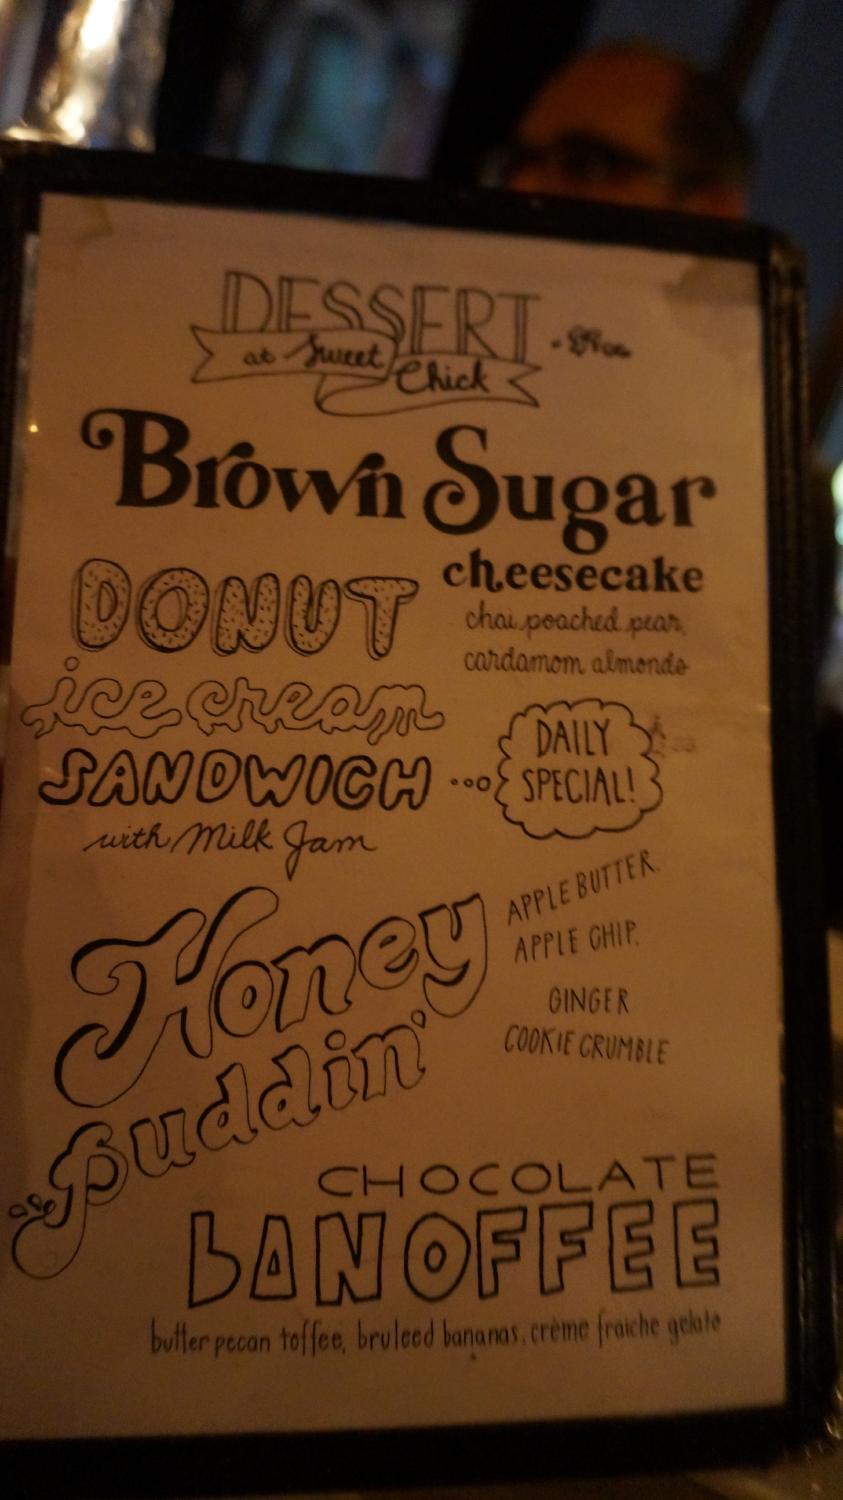 DESSERT
at Sweet Chick
Brown Sugar
cheesecake
chai poached pear,
cardamom almonds
DONUT
ice cream
SANDWICH
with Milk Jam
DAILY
SPECIAL!
Honey
puddin'
APPLE BUTTER.
APPLE CHIP.
GINGER
COOKIE CRUMBLE
CHOCOLATE
BANOFFEE
butter pecan toffee, bruleed bananas, crème fraiche gelato